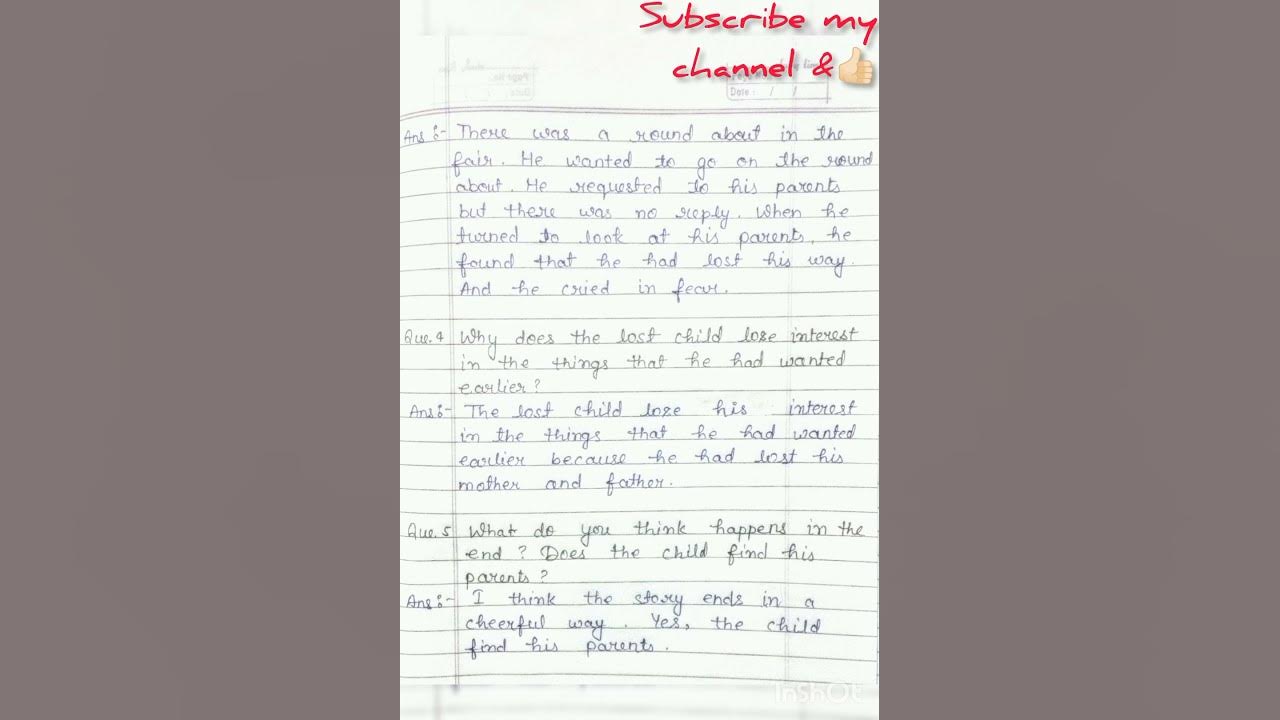 Subscribe my
channel &👍🏻
Page No.
Date : / /
Ans :- There was a round about in the
fair. He wanted to go on the round
about. He requested to his parents
but there was no reply. When he
turned to look at his parents, he
found that he had lost his way.
And he cried in fear.
Que. 4 Why does the lost child lose interest
in the things that he had wanted
earlier ?
Ans :- The lost child lose his interest
in the things that he had wanted
earlier because he had lost his
mother and father.
Que. 5 What do you think happens in the
end ? Does the child find his
parents ?
Ans :- I think the story ends in a
cheerful way. Yes, the child
find his parents.
InShOt